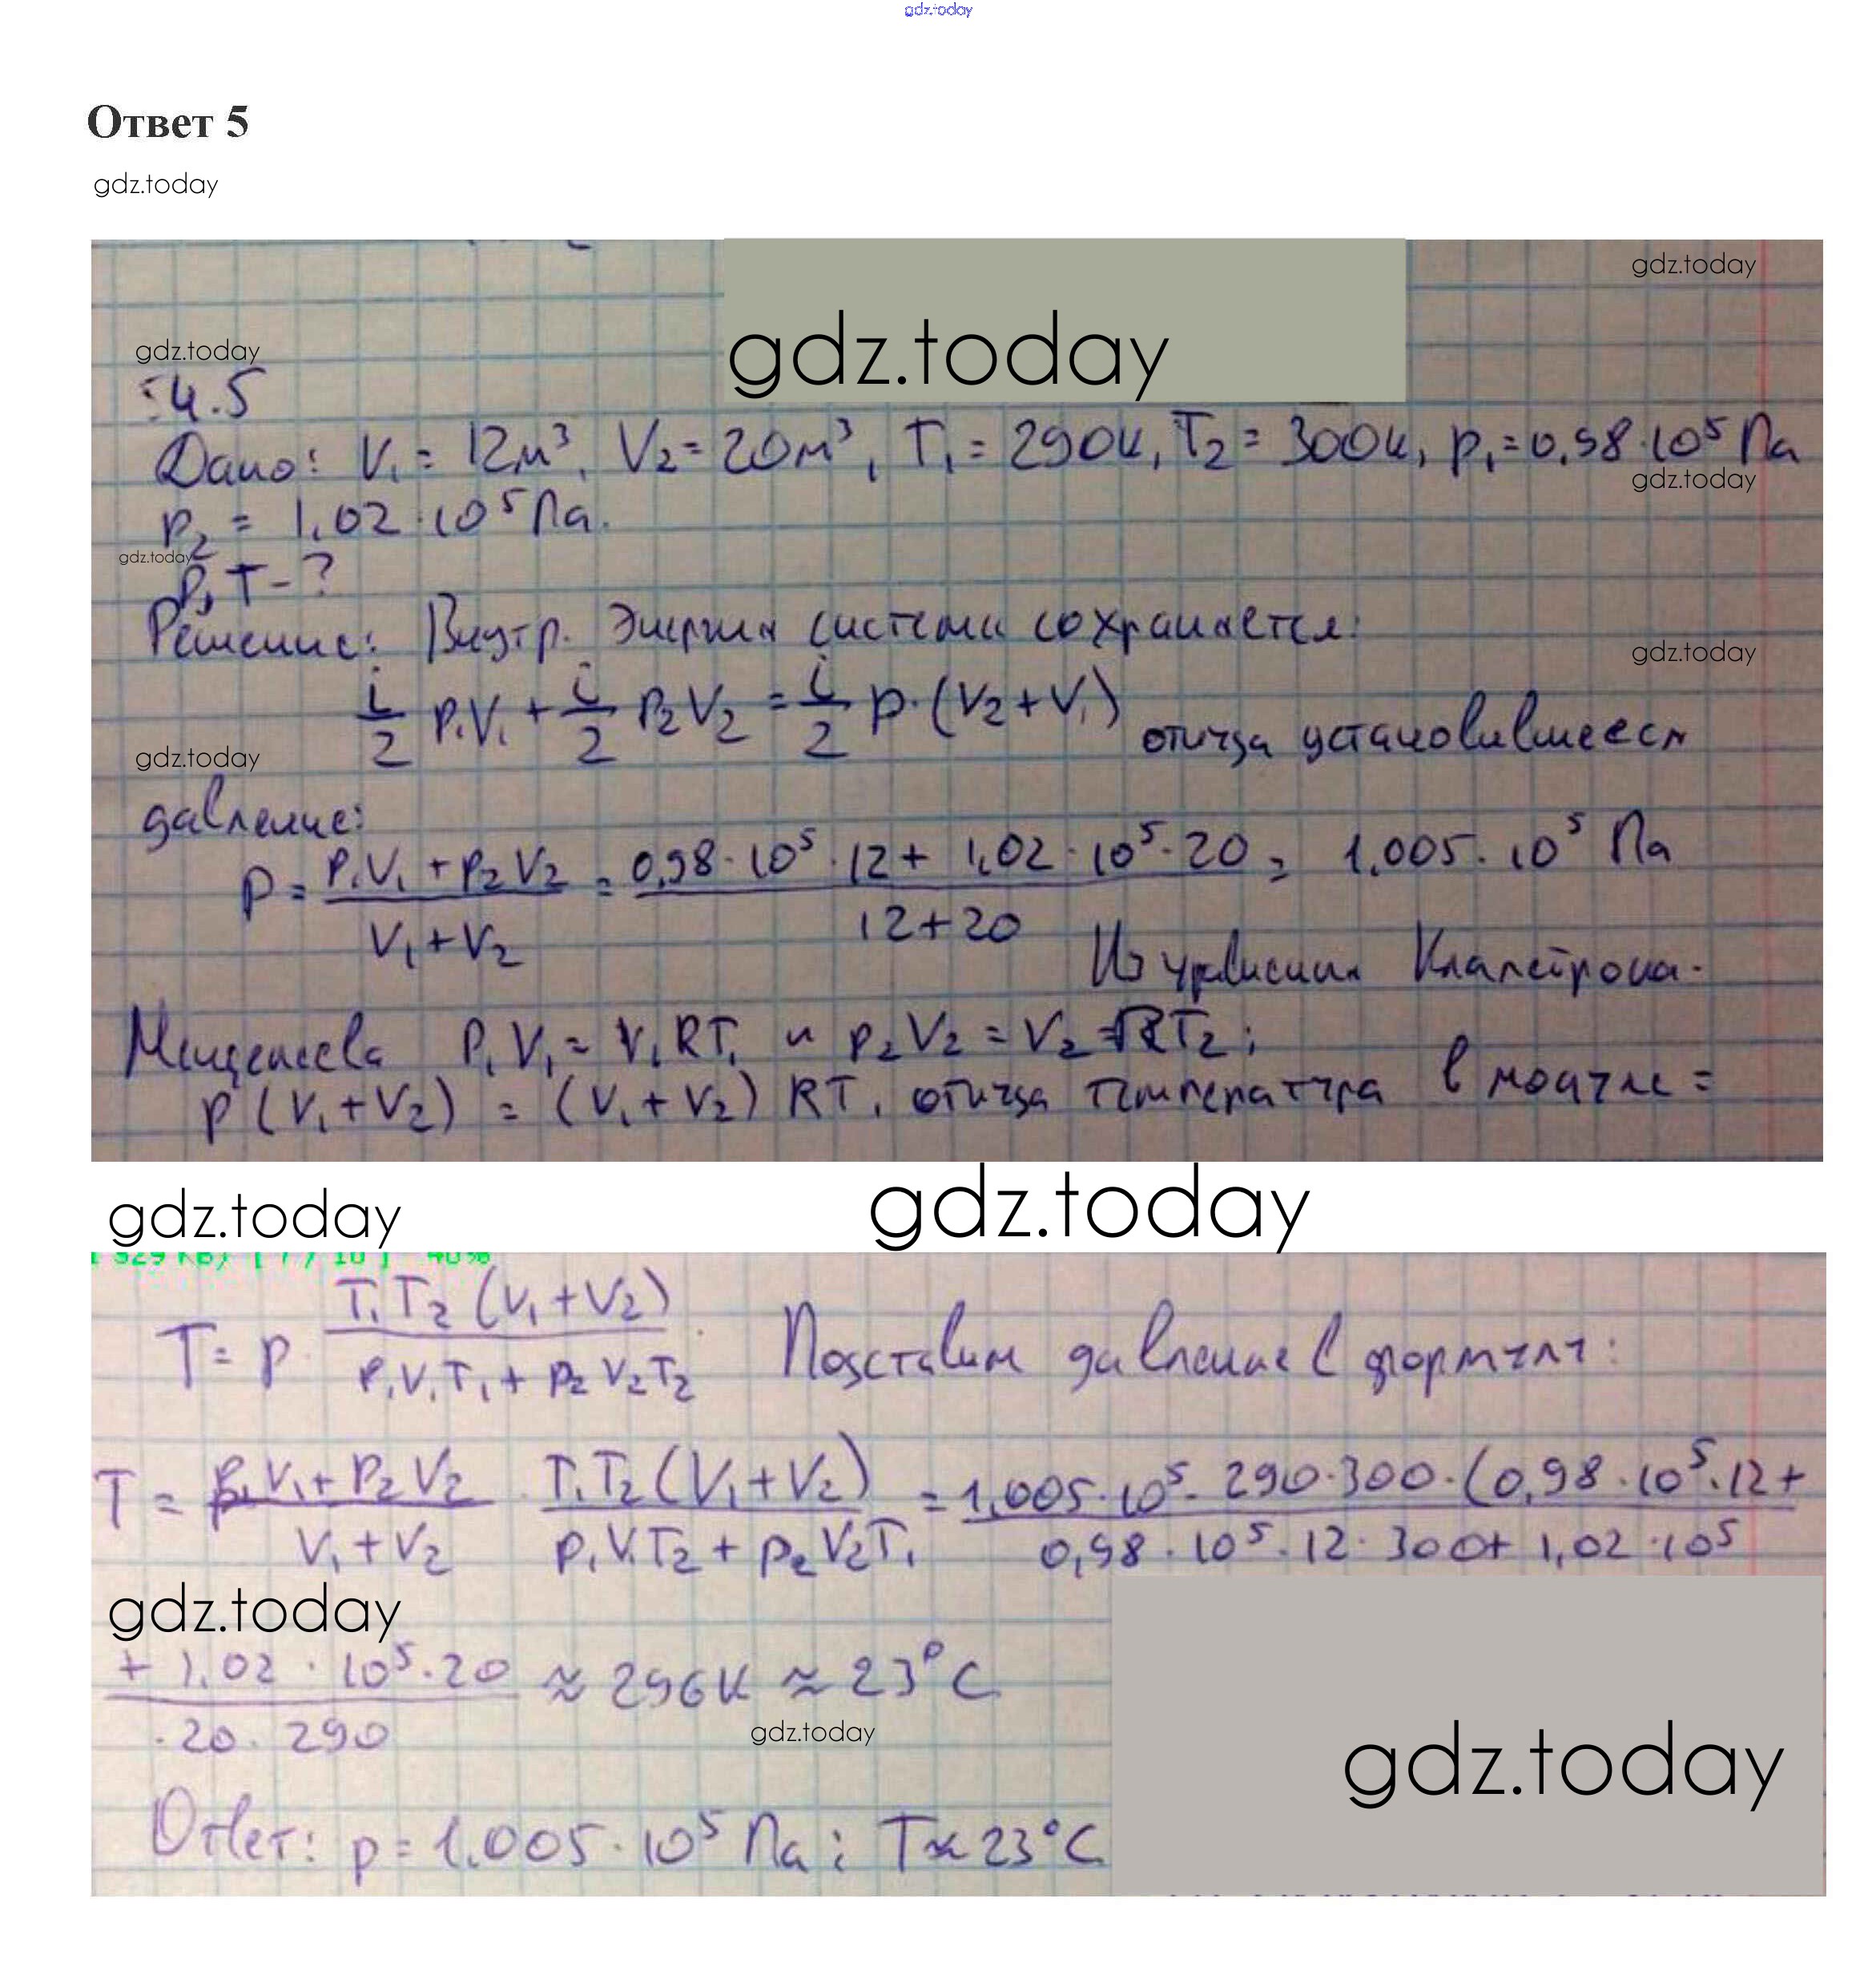 gdz.today
Ответ 5
gdz.today
gdz.today
gdz.today
gdz.today
4.5
Дано: V₁ = 12м³, V₂ = 20м³, T₁ = 290К, T₂ = 300К, p₁ = 0,98·10⁵ Па
gdz.today
p₂ = 1,02·10⁵ Па.
gdz.today
p, T - ?
Решение: Внутр. Энергия системы сохраняется:
gdz.today
i/2 p₁V₁ + i/2 p₂V₂ = i/2 p·(V₂+V₁) откуда установившееся
gdz.today
давление:
p = (p₁V₁ + p₂V₂)/(V₁+V₂) = (0,98·10⁵·12 + 1,02·10⁵·20)/(12+20) = 1,005·10⁵ Па
Из уравнения Клапейрона-
Менделеева p₁V₁ = ν₁RT₁ и p₂V₂ = ν₂RT₂;
p(V₁+V₂) = (ν₁+ν₂) RT, откуда температура в модуле =
gdz.today
gdz.today
T = p · T₁T₂(V₁+V₂)/(p₁V₁T₁ + p₂V₂T₂). Подставим давление в формулу:
T = (p₁V₁ + p₂V₂)/(V₁+V₂) · T₁T₂(V₁+V₂)/(p₁V₁T₂ + p₂V₂T₁) = 1,005·10⁵·290·300·(0,98·10⁵·12+
0,98·10⁵·12·300+ 1,02·10⁵
gdz.today
+ 1,02·10⁵·20 ≈ 296К ≈ 23°C
·20·290
gdz.today
gdz.today
Ответ: p = 1,005·10⁵ Па; T≈23°C